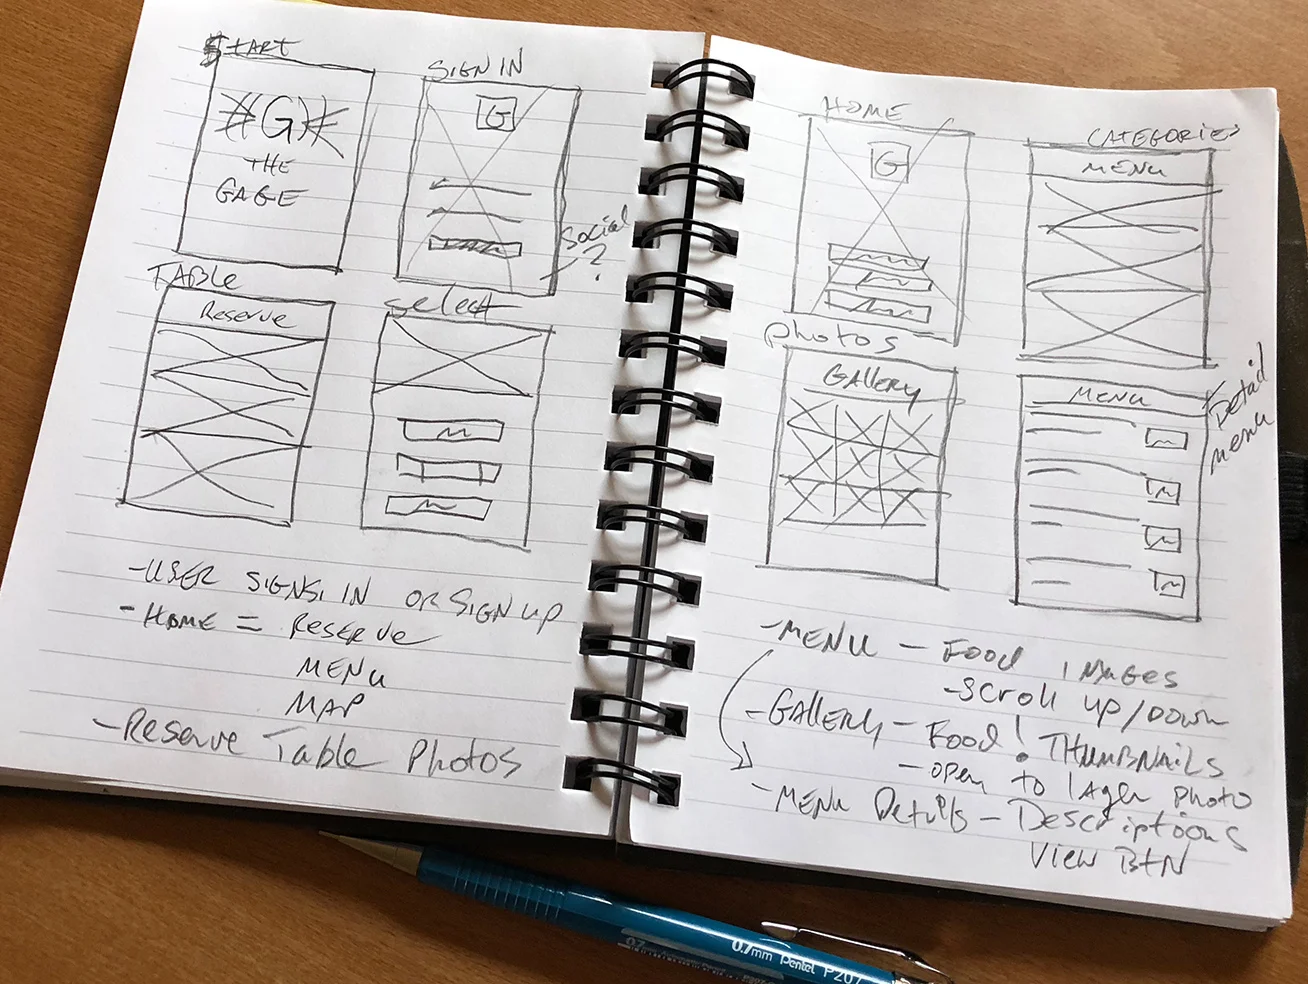 START
#(G)#
THE
GAGE
SIGN IN
G
Social
?
TABLE
Reserve
select
-USER SIGNS IN OR SIGN UP
-HOME = RESERVE
MENU
MAP
-Reserve Table Photos
HOME
G
CATEGORIES
MENU
photos
GALLERY
MENU
Detail
menu
-MENU - FOOD IMAGES
-SCROLL UP/DOWN
-GALLERY - Food! THUMBNAILS
-open to lager photo
-MENU Details - Descriptions
View BTN
0.7mm Pentel P207